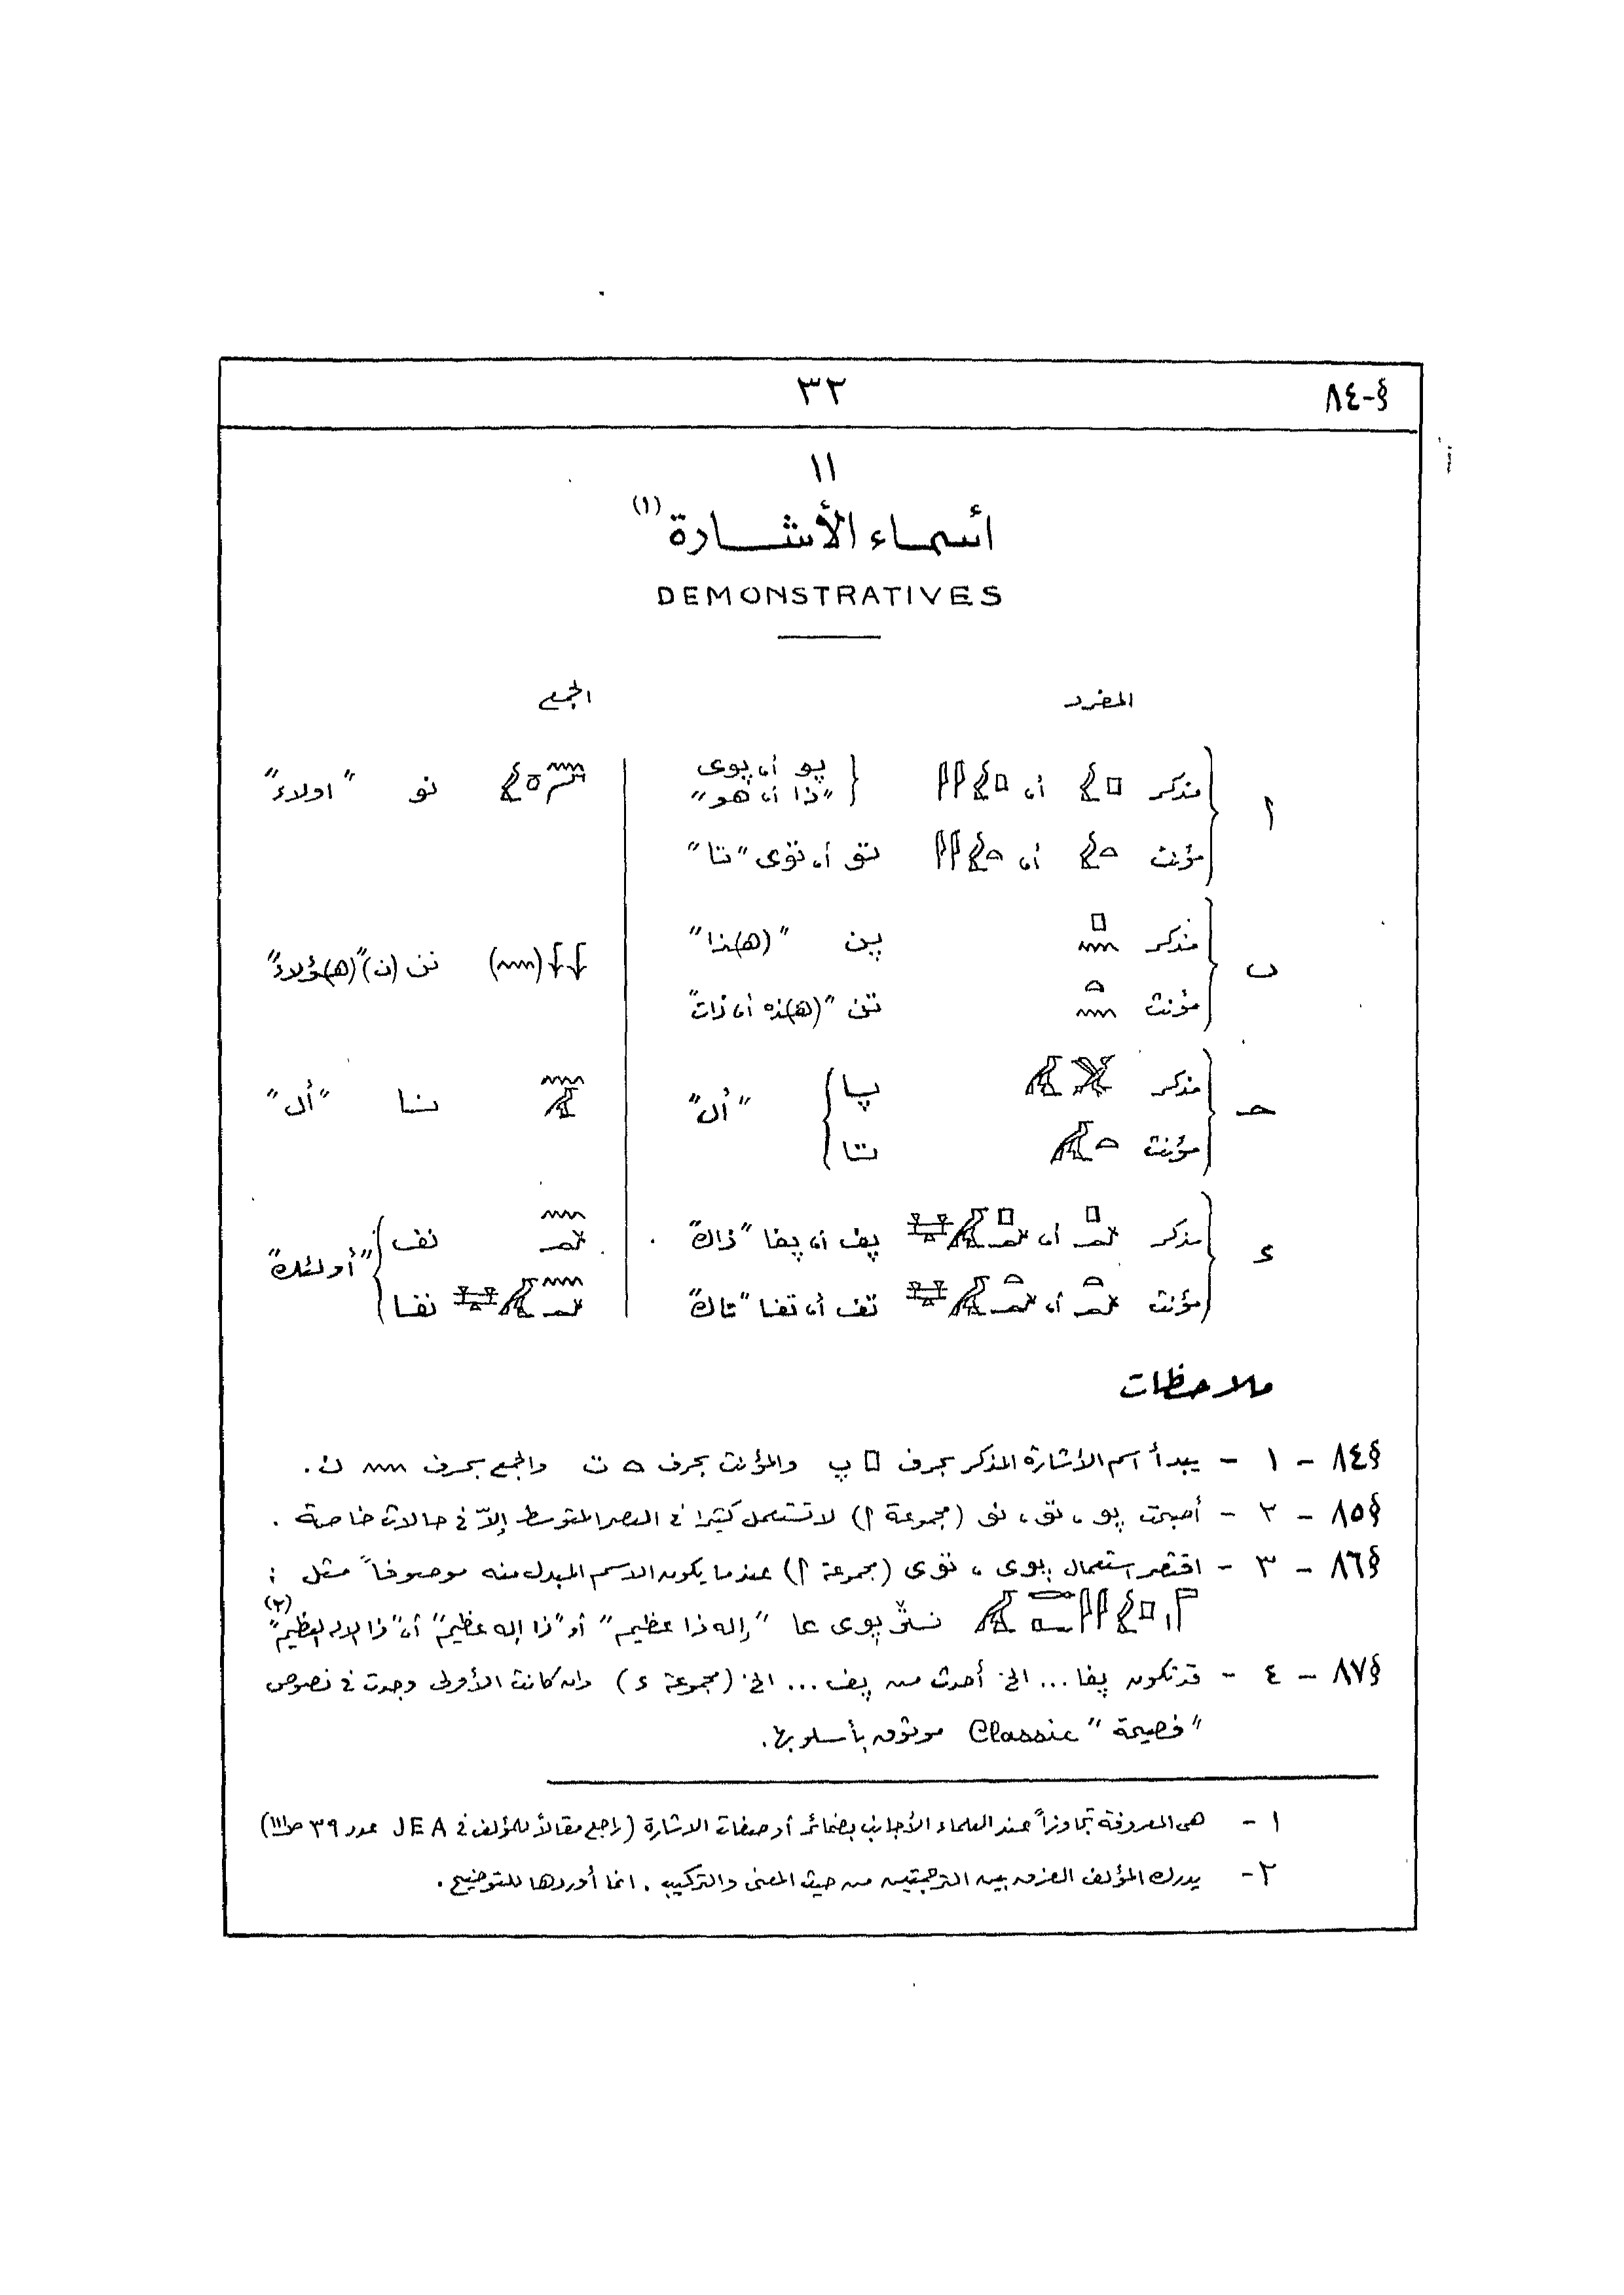 §-٨٤
٣٢
١١
أسماء الأشارة (١)
DEMONSTRATIVES
المفرد الجمع
أ
مذكر 𓊪𓅱 أى 𓊪𓅱𓇋𓇋 پو أى پوى "ذا أى هو" نو "اولاء"
مؤنث 𓏏𓅱 أى 𓏏𓅱𓇋𓇋 تو أى توى "تا"
ب
مذكر 𓊪𓈖 پن "(ه)ذا" 𓇑𓇑(𓈖) نن (ن) "(ه)ؤلاء"
مؤنث 𓏏𓈖 تن "(ه)ذه أى ذات"
حـ
مذكر 𓅮𓄿 پا "أل" 𓈖𓄿 نا "أل"
مؤنث 𓏏𓄿 تا
ء
مذكر 𓊪𓆑 أى پف أى پفا "ذاك" 𓈖𓆑 نف "أولئك"
مؤنث 𓏏𓆑 أى تف أى تفا "تاك" نفا
ملاحظات
§٨٤ - ١ - يبدأ اسم الأشارة المذكر بحرف 𓊪 پ والمؤنث بحرف 𓏏 ت والجمع بحرف 𓈖 ن.
§٨٥ - ٢ - أصبحت پو، تو، نو (مجموعة أ) لا تستعمل كثيرا فى العصر المتوسط إلاّ فى حالات خاصة.
§٨٦ - ٣ - اقتصر استعمال پوى، توى (مجموعة أ) عندما يكون الاسم المبدل منه موصوفاً مثل :
پوى عا "إله ذا عظيم" أو "ذا إله عظيم" أى "ذا الاله العظيم" (٢)
§٨٧ - ٤ - قد تكون پفا ... الخ أحدث من پف ... الخ (مجموعة ء) وان كانت الأولى وجدت فى نصوص
"فصيحة" Classic موثوق بأسلوبها.
١ - هى المعروفة تجاوزاً عند العلماء الأجانب بضمائر أو صفات الاشارة (راجع مقالاً للمؤلف فى JEA عدد ٣٩ ص١١١)
٢ - يدرك المؤلف الفرق بين الترجمتين من حيث المعنى والتركيب. انما أوردها للتوضيح.